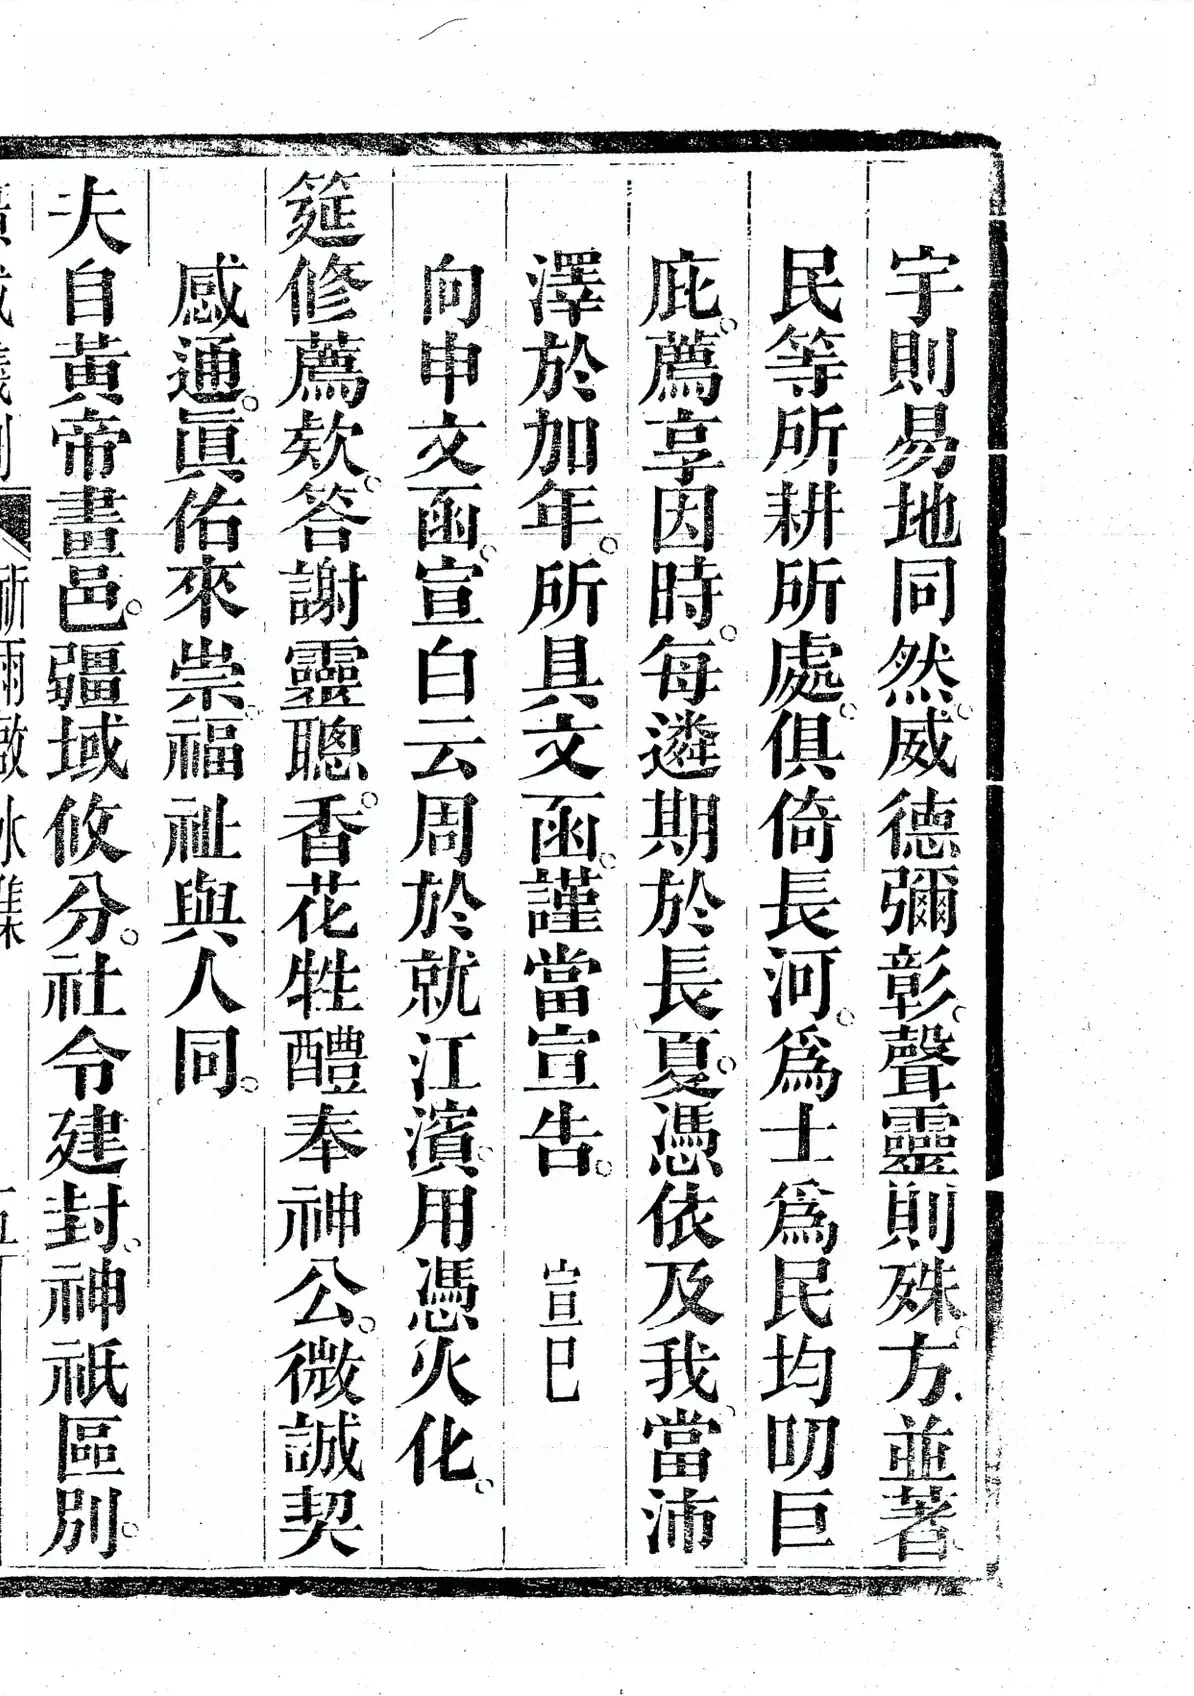 宇則易地同然。威德彌彰。聲靈則殊。方並著
民等所耕所處。俱倚長河。爲士爲民均叨巨
庇。薦享因時。每遴期於長夏。憑依及我當沛
澤於加年。所具文函。謹當宣告。宣巳
向申文函。宣白云周於就江濱。用憑火化。
筵修薦欸。答謝靈聰。香花牲醴奉神公。微誠契
感通。眞佑來崇。福祉與人同。
夫自黃帝畫邑。疆域攸分。社令建封。神祇區別。
祈雨啟水雜